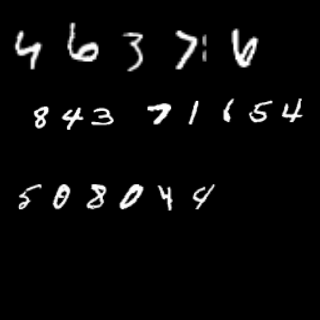 4 6 3 7 6
8 4 3 7 1 6 5 4
5 0 8 0 4 4